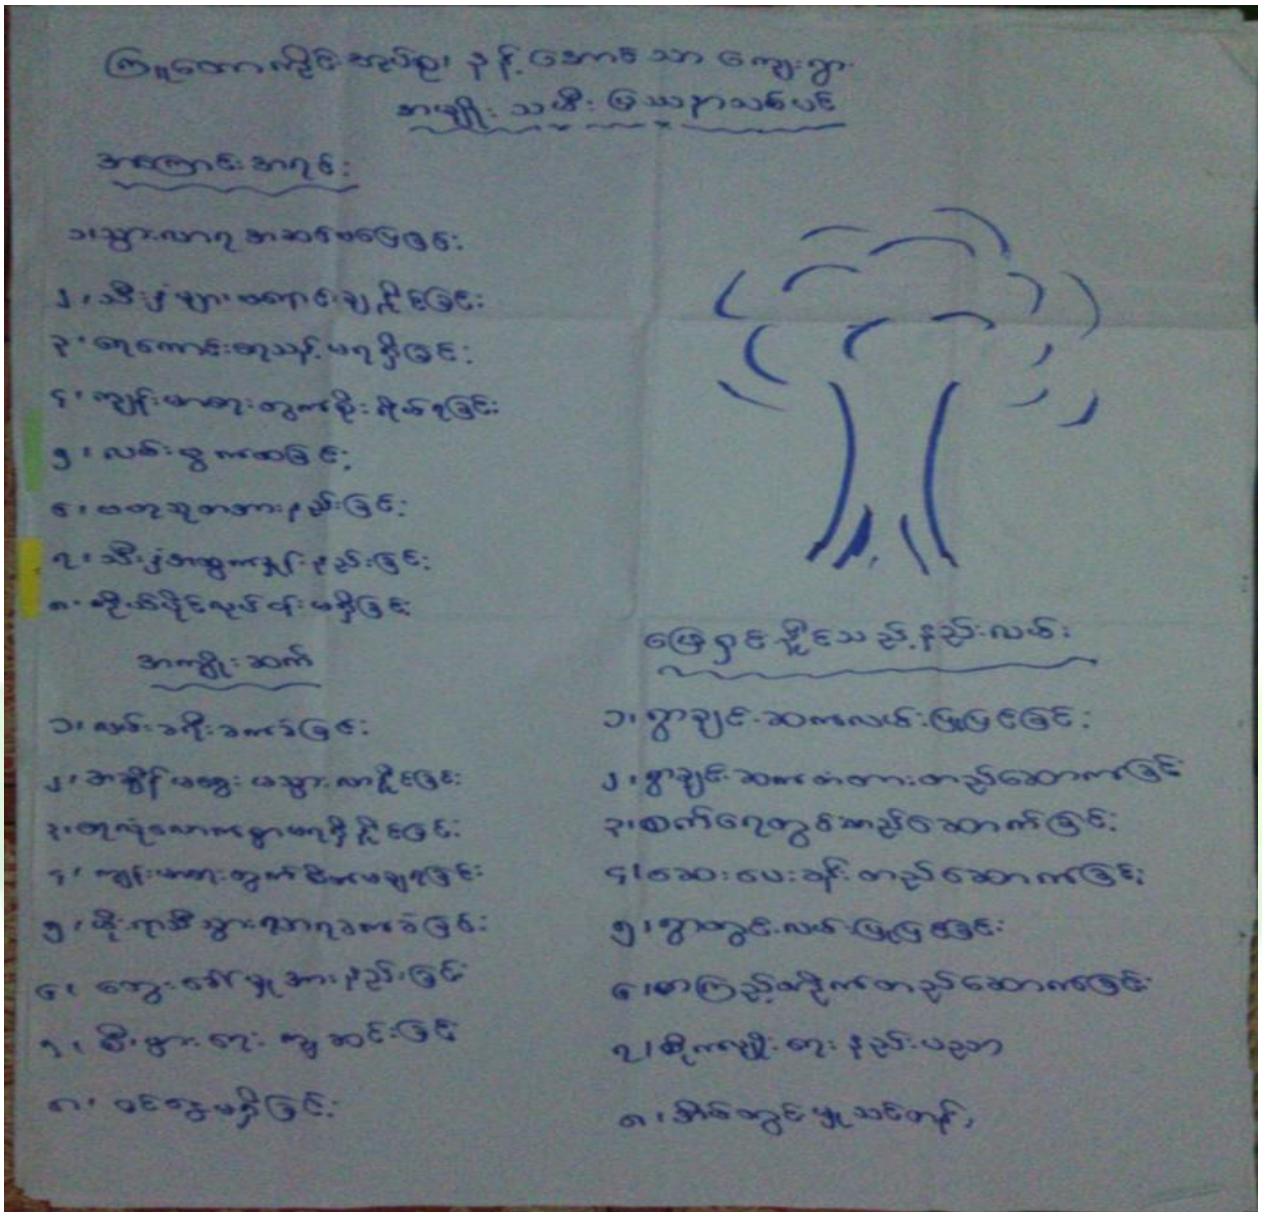 ကြူတောကိုင်းအုပ်စု၊ နန့်အောင်သာ ကျေးရွာ
အမျိုးသမီး ပြဿနာသစ်ပင်
အကြောင်းအရင်း
၁၊ သွားလာရ အဆင်မပြေခြင်း
၂၊ သီးနှံများ မရောင်းချနိုင်ခြင်း
၃၊ ရေကောင်းရေသန့် မရရှိခြင်း
၄၊ ကျန်းမာရေးတွက် စိုးရိမ်ရခြင်း
၅၊ လမ်း
၆၊ ဗဟုသုတအားနည်းခြင်း
၇၊ သီးနှံအထွက်နှုန်းနည်းခြင်း
၈၊ ကိုယ်ပိုင်လုပ်ငန်းမရှိခြင်း
အကျိုးဆက်
၁၊ လမ်းခရီးခက်ခဲခြင်း
၂၊ အချိန်မရွေး မသွားလာနိုင်ခြင်း
၃၊ ရေလုံလောက်စွာမရရှိနိုင်ခြင်း
၄၊ ကျန်းမာရေးတွက် စိတ်မချရခြင်း
၅၊ မိုးရာသီသွားလာရခက်ခဲခြင်း
၆၊ တွေးခေါ်မှုအားနည်းခြင်း
၇၊ စီးပွားရေး ကျဆင်းခြင်း
၈၊ ဝင်ငွေမရှိခြင်း
ဖြေရှင်းနိုင်သည့်နည်းလမ်း
၁၊ ရွာချင်းဆက်လမ်းပြုပြင်ခြင်း
၂၊ ရွာချင်းဆက်တံတားတည်ဆောက်ခြင်း
၃၊ စက်ရေတွင်းတည်ဆောက်ခြင်း
၄၊ ဆေးပေးခန်းတည်ဆောက်ခြင်း
၅၊ ရွာတွင်းလမ်းပြုပြင်ခြင်း
၆၊ စာကြည့်တိုက်တည်ဆောက်ခြင်း
၇၊ စိုက်ပျိုးရေးနည်းပညာ
၈၊ အိမ်တွင်းမှုသင်တန်း